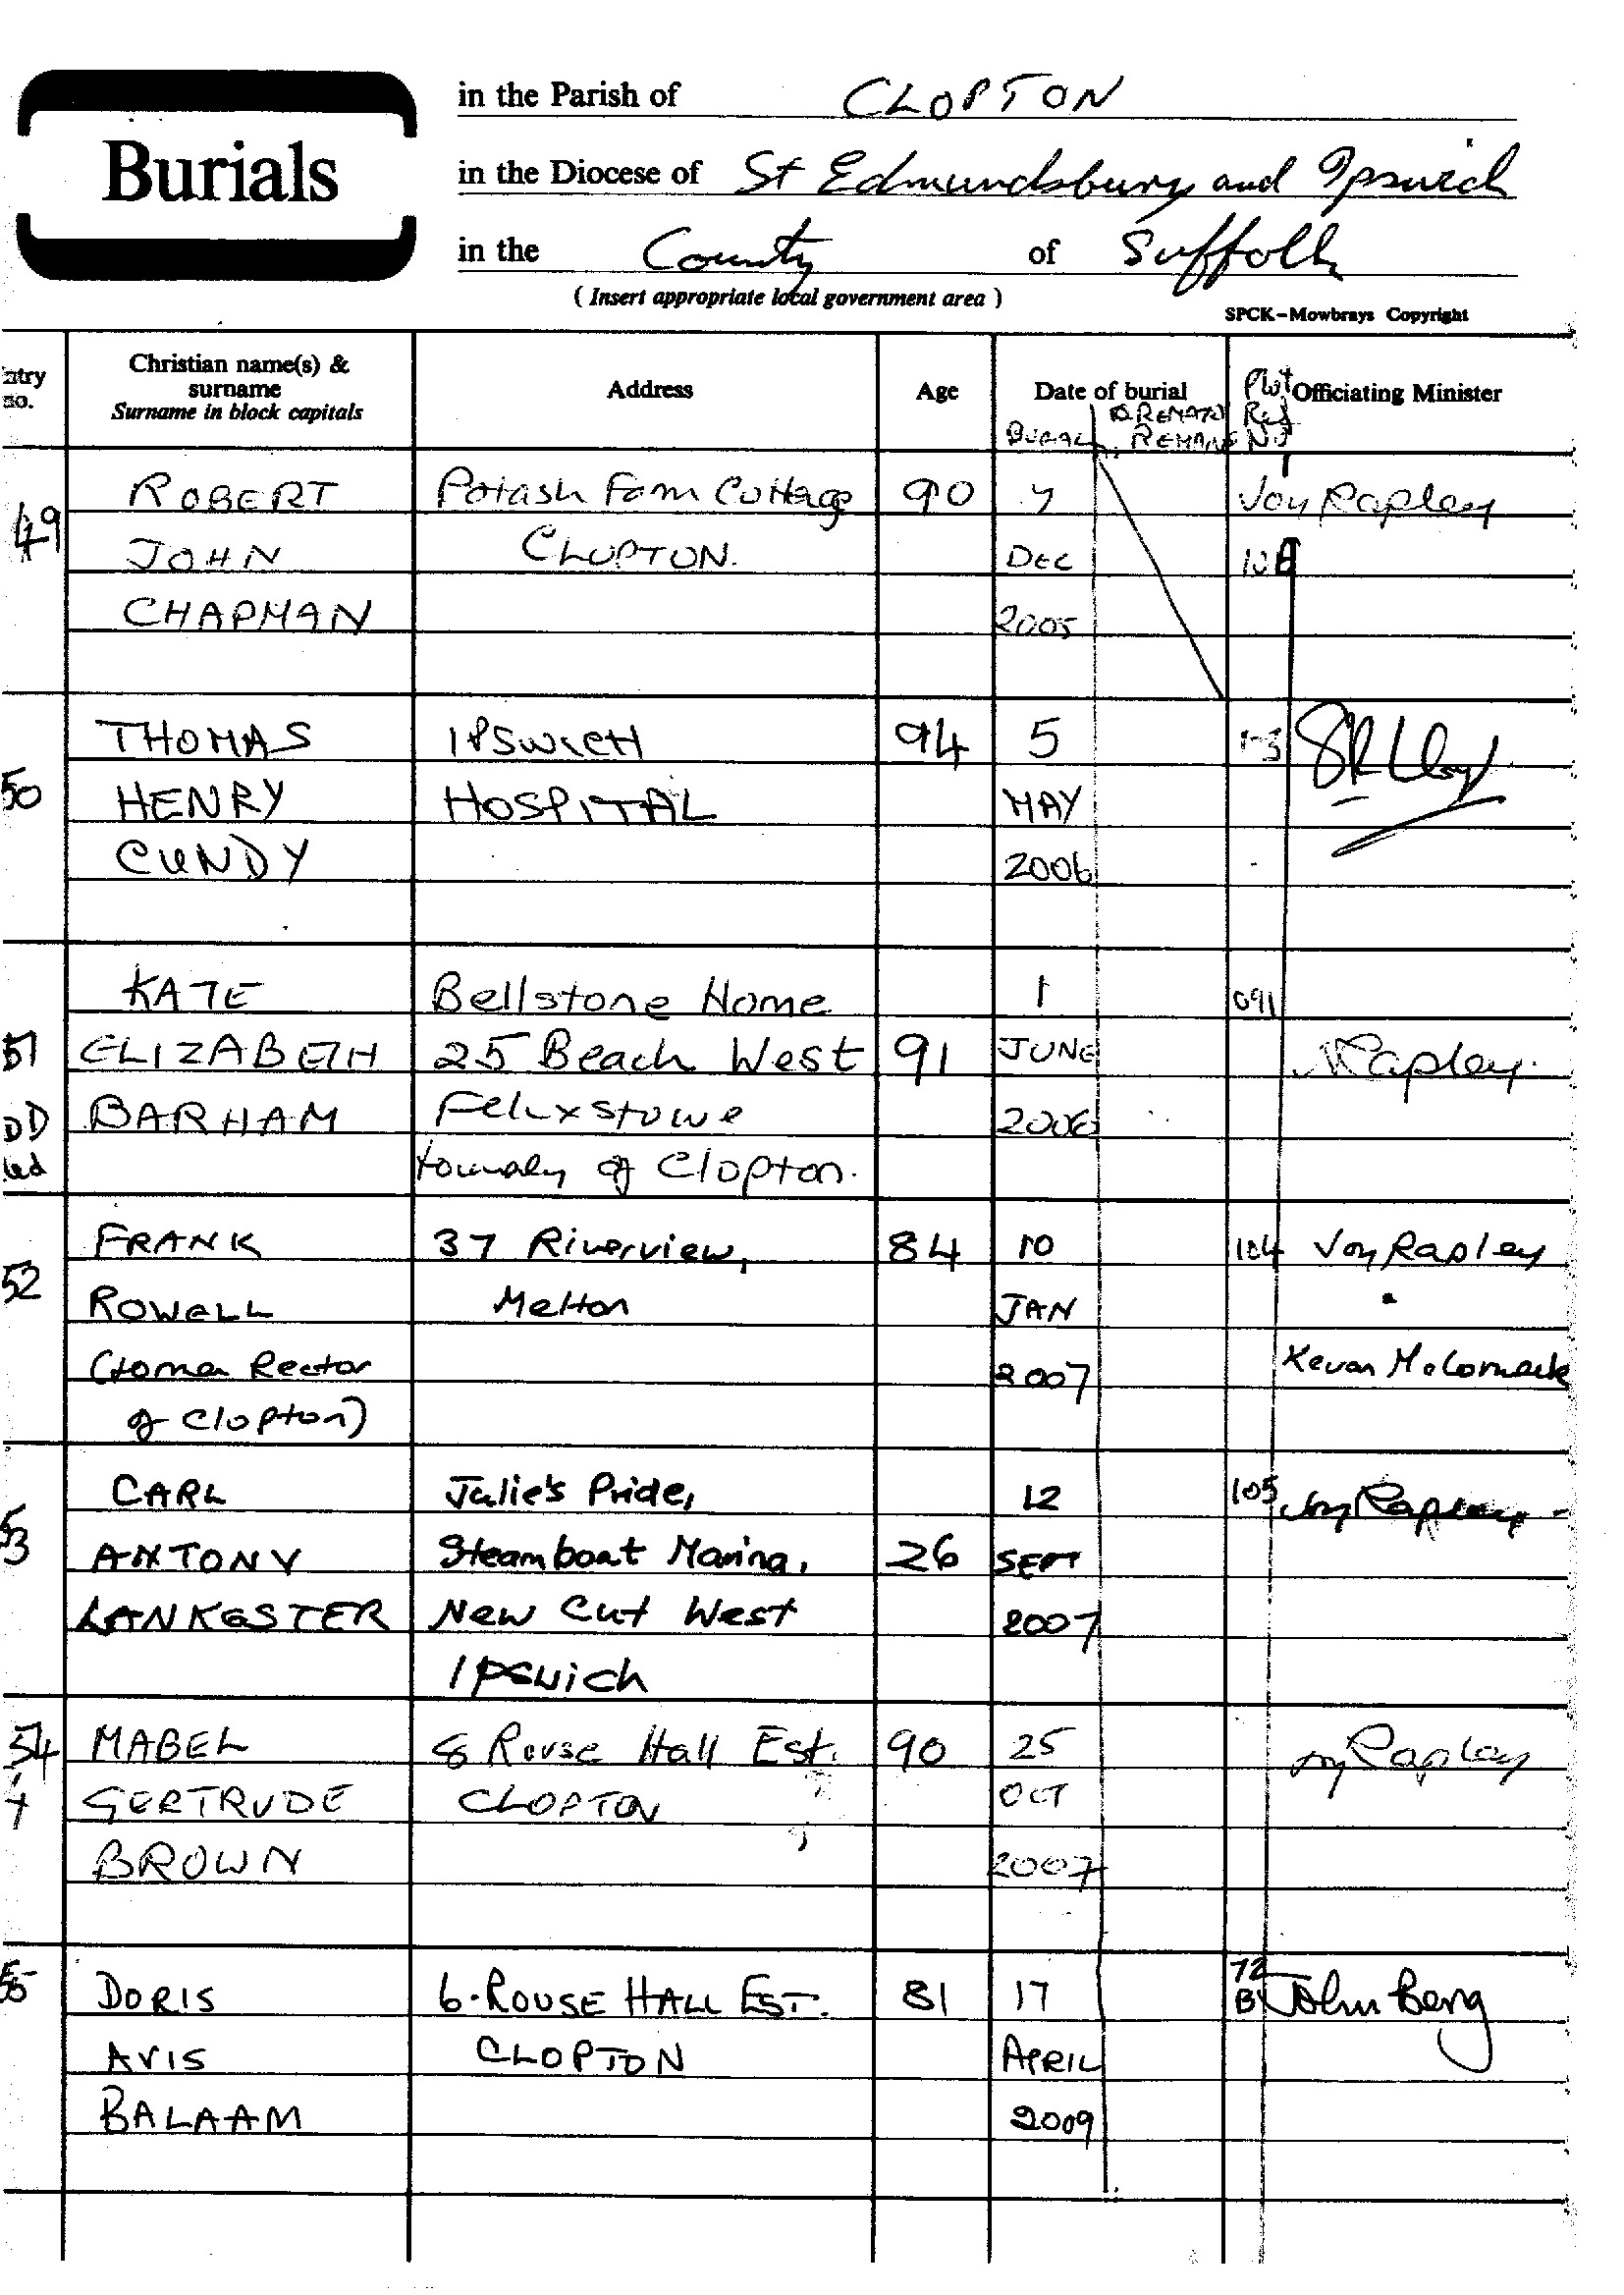 Burials
in the Parish of CLOPTON
in the Diocese of St Edmundsbury and Ipswich
in the County of Suffolk
( Insert appropriate local government area )
SPCK-Mowbrays Copyright
ntry no. Christian name(s) & surname Surname in block capitals Address Age Date of burial Plot Ref No Officiating Minister
BURIAL REMAINS
49 ROBERT Potash Farm Cottage 90 7 Joy Rapley
JOHN CLOPTON. DEC
CHAPMAN 2005
50 THOMAS IPSWICH 94 5
HENRY HOSPITAL MAY
CUNDY 2006
KATE Bellstone Home 1 091
51 ELIZABETH 25 Beach West 91 JUNE Rapley.
BARHAM Felixstowe 2006
formaly of Clopton.
52 FRANK 37 Riverview, 84 10 104 Joy Rapley
ROWELL Melton JAN
(former Rector 2007 Kevan McCormack
of Clopton)
53 CARL Julie's Pride, 12 105 Joy Rapley
ANTONY Steamboat Marina, 26 SEPT
LANKESTER New Cut West 2007
Ipswich
54 MABEL 8 Rouse Hall Est. 90 25 Joy Rapley
GERTRUDE CLOPTON OCT
BROWN 2007
55 DORIS 6. ROUSE HALL EST. 81 17 72 B John Berg
AVIS CLOPTON APRIL
BALAAM 2009